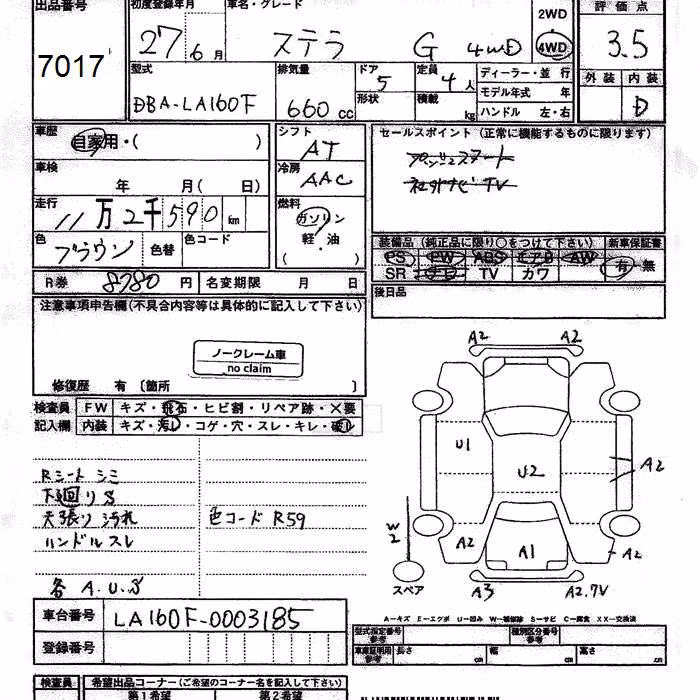 出品番号 初度登録年月 車名・グレード 2WD 評価点
7017 27年6月 ステラ G 4WD 4WD 3.5
型式 排気量 ドア 定員 ディーラー・並行 外装 内装
DBA-LA160F 660cc 5 4人 モデル年式 年 D
形状 積載 kg ハンドル 左・右
車歴 自家用・( ) シフト AT セールスポイント(正常に機能するものに限ります)
車検 年 月( 日) 冷房 AAC プッシュスタート
社外ナビ TV
走行 11万2千590km 燃料 ガソリン
軽・油
( )
色 ブラウン 色替 色コード 装備品(純正品に限り○をつけて下さい) 新車保証書
PS PW ABS エアB AW 有・無
SR ナビ TV カワ
R券 8780円 名変期限 月 日 後日品
注意事項申告欄(不具合内容等は具体的に記入して下さい)
ノークレーム車
no claim
修復歴 有〔箇所 〕
検査員 FW キズ・飛石・ヒビ割・リペア跡・X要
記入欄 内装 キズ・汚レ・コゲ・穴・スレ・キレ・破レ
Rシートシミ
下廻りS
天張り汚れ 色コード R59
ハンドルスレ
各 A.U.S
A2 A2
U1 U2 A2
W2 A2 A1 A2
スペア A3 A2.7V
A-キズ E-エクボ U-凹み W-補修跡 S-サビ C-腐食 XX-交換済
車台番号 LA160F-0003185
登録番号
型式指定番号 参考 種別区分番号 参考
車庫証明用 参考 長さ cm 幅 cm 高さ cm
検査員 希望出品コーナー(ご希望のコーナー名を記入して下さい)
第1希望 第2希望